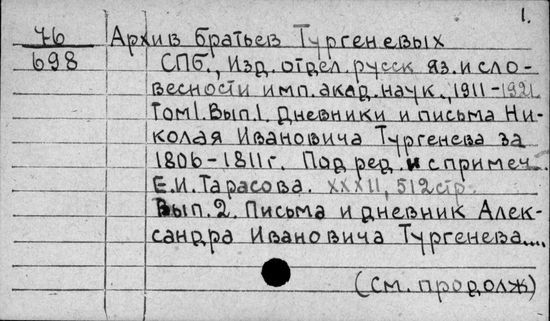 1.
76 Архив братьев Тургеневых
698 СПб., Изд. отдел. русск яз. и сло-
весности имп. акад. наук., 1911-1921
Том 1. Вып. 1. Дневники и письма Ни-
колая Ивановича Тургенева за
1806-1811 г. Под ред. и с примеч.
Е.И. Тарасова. XXXII, 512 стр.
Вып. 2. Письма и дневник Алек-
сандра Ивановича Тургенева....
(см. продолж)